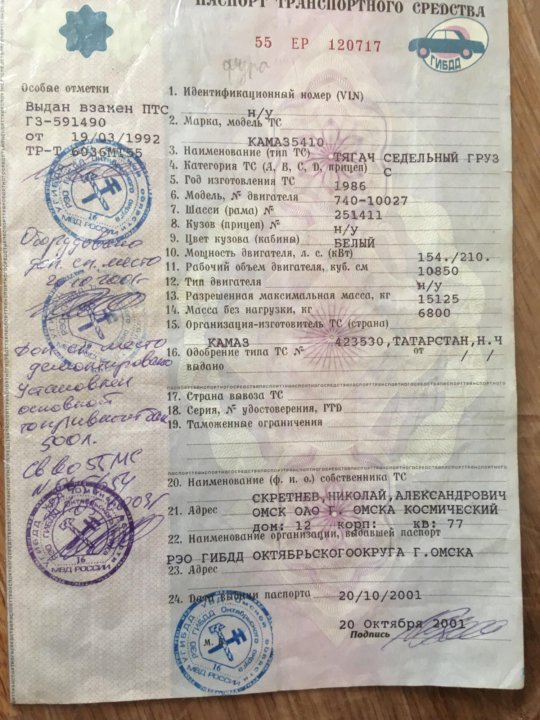 ПАСПОРТ ТРАНСПОРТНОГО СРЕДСТВА
55 ЕР 120717
ГИБДД
Особые отметки
Выдан взамен ПТС
ГЗ-591490
от 19/03/1992
ТР-Т 6036М155
Оборудовано
доп. сп. место
демонтировано
установлен
основной
500л.
1. Идентификационный номер (VIN)
н/у
2. Марка, модель ТС
КАМАЗ5410
3. Наименование (тип ТС)
ТЯГАЧ СЕДЕЛЬНЫЙ ГРУЗ
4. Категория ТС (А, В, С, D, прицеп)
С
5. Год изготовления ТС
1986
6. Модель, № двигателя
740-10027
7. Шасси (рама) №
251411
8. Кузов (прицеп) №
н/у
9. Цвет кузова (кабина)
БЕЛЫЙ
10. Мощность двигателя, л. с. (кВт)
154./210.
11. Рабочий объем двигателя, куб. см
10850
12. Тип двигателя
н/у
13. Разрешенная максимальная масса, кг
15125
14. Масса без нагрузки, кг
6800
15. Организация-изготовитель ТС (страна)
КАМАЗ 423530,ТАТАРСТАН,Н.Ч
16. Одобрение типа ТС № от / /
выдано
17. Страна вывоза ТС
18. Серия, № удостоверения, ГТД
19. Таможенные ограничения
20. Наименование (ф. и. о.) собственника ТС
СКРЕТНЕВ,НИКОЛАЙ,АЛЕКСАНДРОВИЧ
21. Адрес
ОМСК ОАО Г. ОМСКА КОСМИЧЕСКИЙ
дом: 12 корп: кв: 77
22. Наименование организации, выдавшей паспорт
РЭО ГИБДД ОКТЯБРЬСКОГООКРУГА Г.ОМСКА
23. Адрес
24. Дата выдачи паспорта
20/10/2001
20 Октября 2001
Подпись
М.